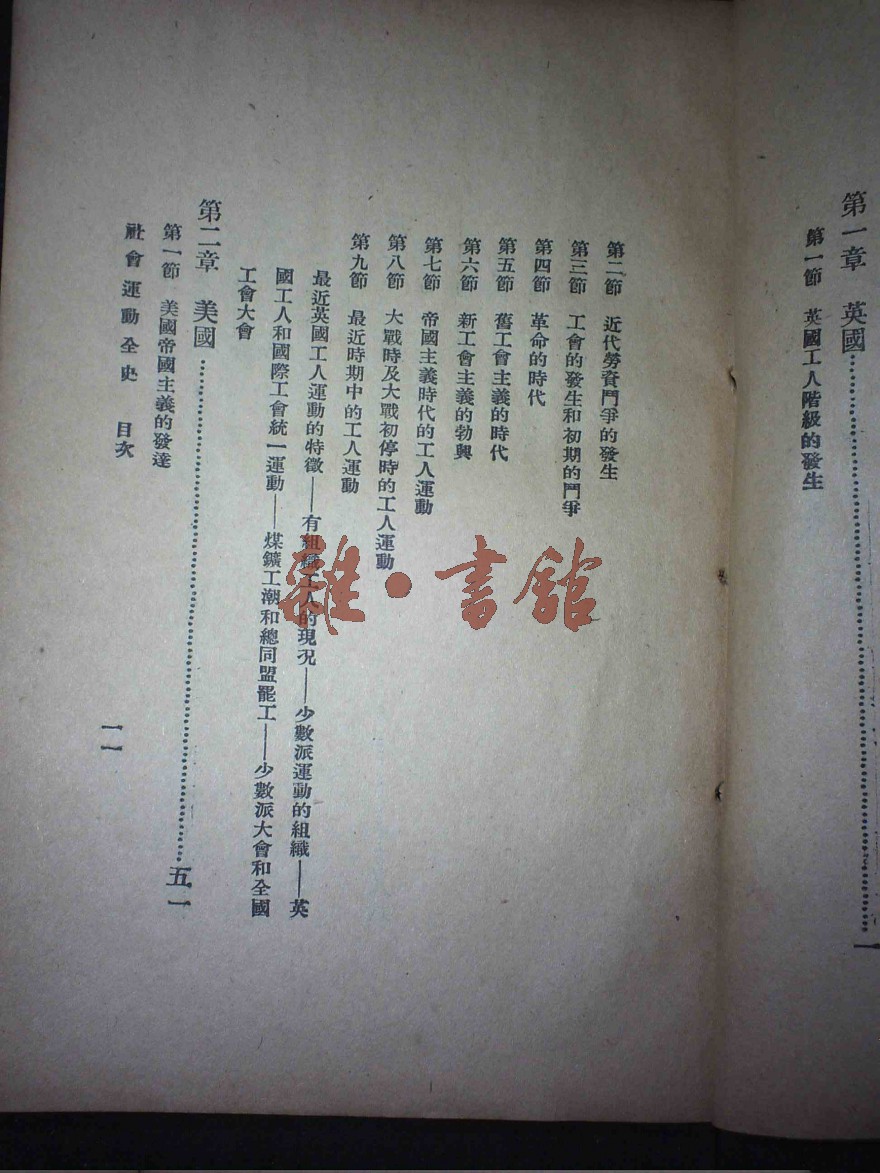 第一章 英國……一
第一節 英國工人階級的發生
第二節 近代勞資鬥爭的發生
第三節 工會的發生和初期的鬥爭
第四節 革命的時代
第五節 舊工會主義的時代
第六節 新工會主義的勃興
第七節 帝國主義時代的工人運動
第八節 大戰時及大戰初停時的工人運動
第九節 最近時期中的工人運動
最近英國工人運動的特徵——有組織工人的現況——少數派運動的組織——英
國工人和國際工會統一運動——煤鑛工潮和總同盟罷工——少數派大會和全國
工會大會
第二章 美國……五一
第一節 美國帝國主義的發達
社會運動全史 目次
一一
雜·書館